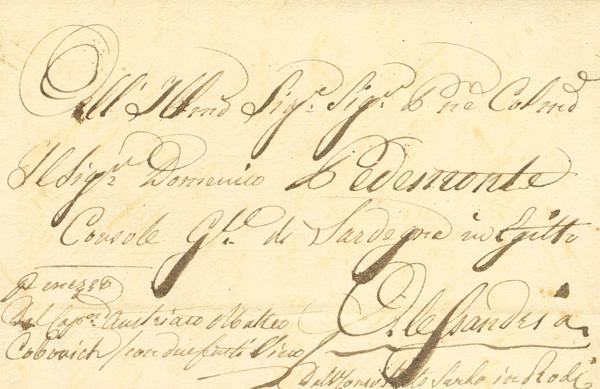 All' Illmo Sigr. Sigr. Pne Colmo
Il Sigr. Domenico Pedemonte
Console Gle. di Sardegna in Egitto
Alessandria
p mezzo
Del Capn. Austriaco Matteo
Cobovich con due
Dal Consolato Sardo in Rodi